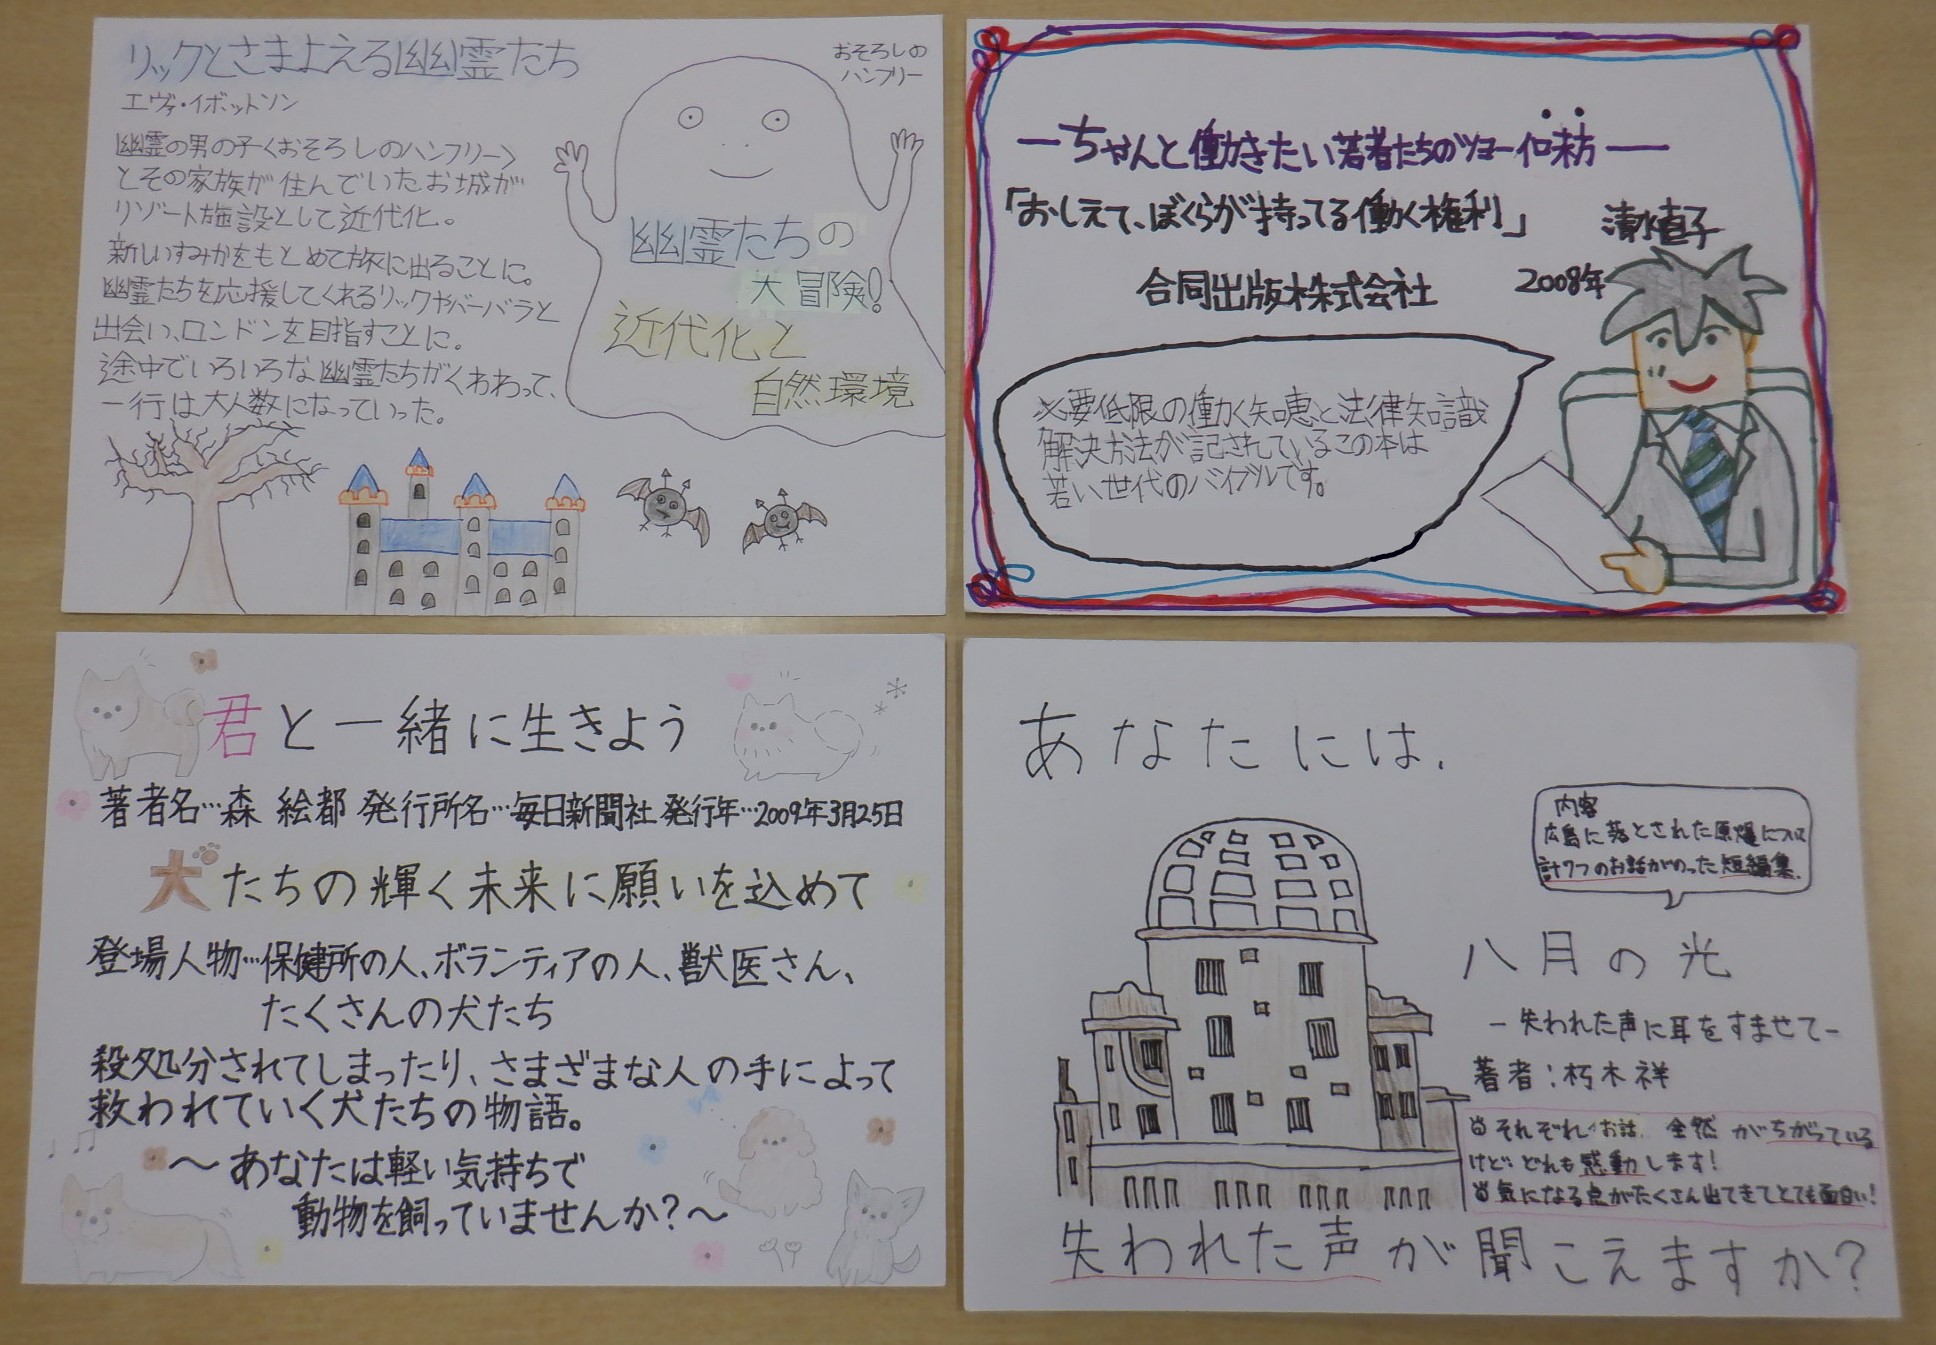 リックとさまよえる幽霊たち
エヴァ・イボットソン
幽霊の男の子くおそろしのハンフリー〉
とその家族が住んでいたお城が
リゾート施設として近代化。
新しいすみかをもとめて旅に出ることに。
幽霊たちを応援してくれるリックやバーバラと
出会い、ロンドンを目指すことに。
途中でいろいろな幽霊たちがくわわって、
一行は大人数になっていった。
おそろしの
ハンフリー
幽霊たちの
大冒険!
近代化と
自然環境
―ちゃんと働きたい若者たちのツヨーイ味方―
「おしえて、ぼくらが持ってる働く権利」
清水直子
合同出版株式会社
2008年
必要低限の働く知恵と法律知識
解決方法が記されているこの本は
若い世代のバイブルです。
君と一緒に生きよう
著者名…森 絵都 発行所名…毎日新聞社 発行年…2009年3月25日
犬たちの輝く未来に願いを込めて
登場人物…保健所の人、ボランティアの人、獣医さん、
たくさんの犬たち
殺処分されてしまったり、さまざまな人の手によって
救われていく犬たちの物語。
～あなたは軽い気持ちで
動物を飼っていませんか?～
あなたには、
内容
広島に落とされた原爆について
計7つのお話がのった短編集。
八月の光
―失われた声に耳をすませて―
著者:朽木祥
それぞれお話、全然がちがっている
けど、どれも感動します!
気になる点がたくさん出てきてとても面白い!
失われた声が聞こえますか?